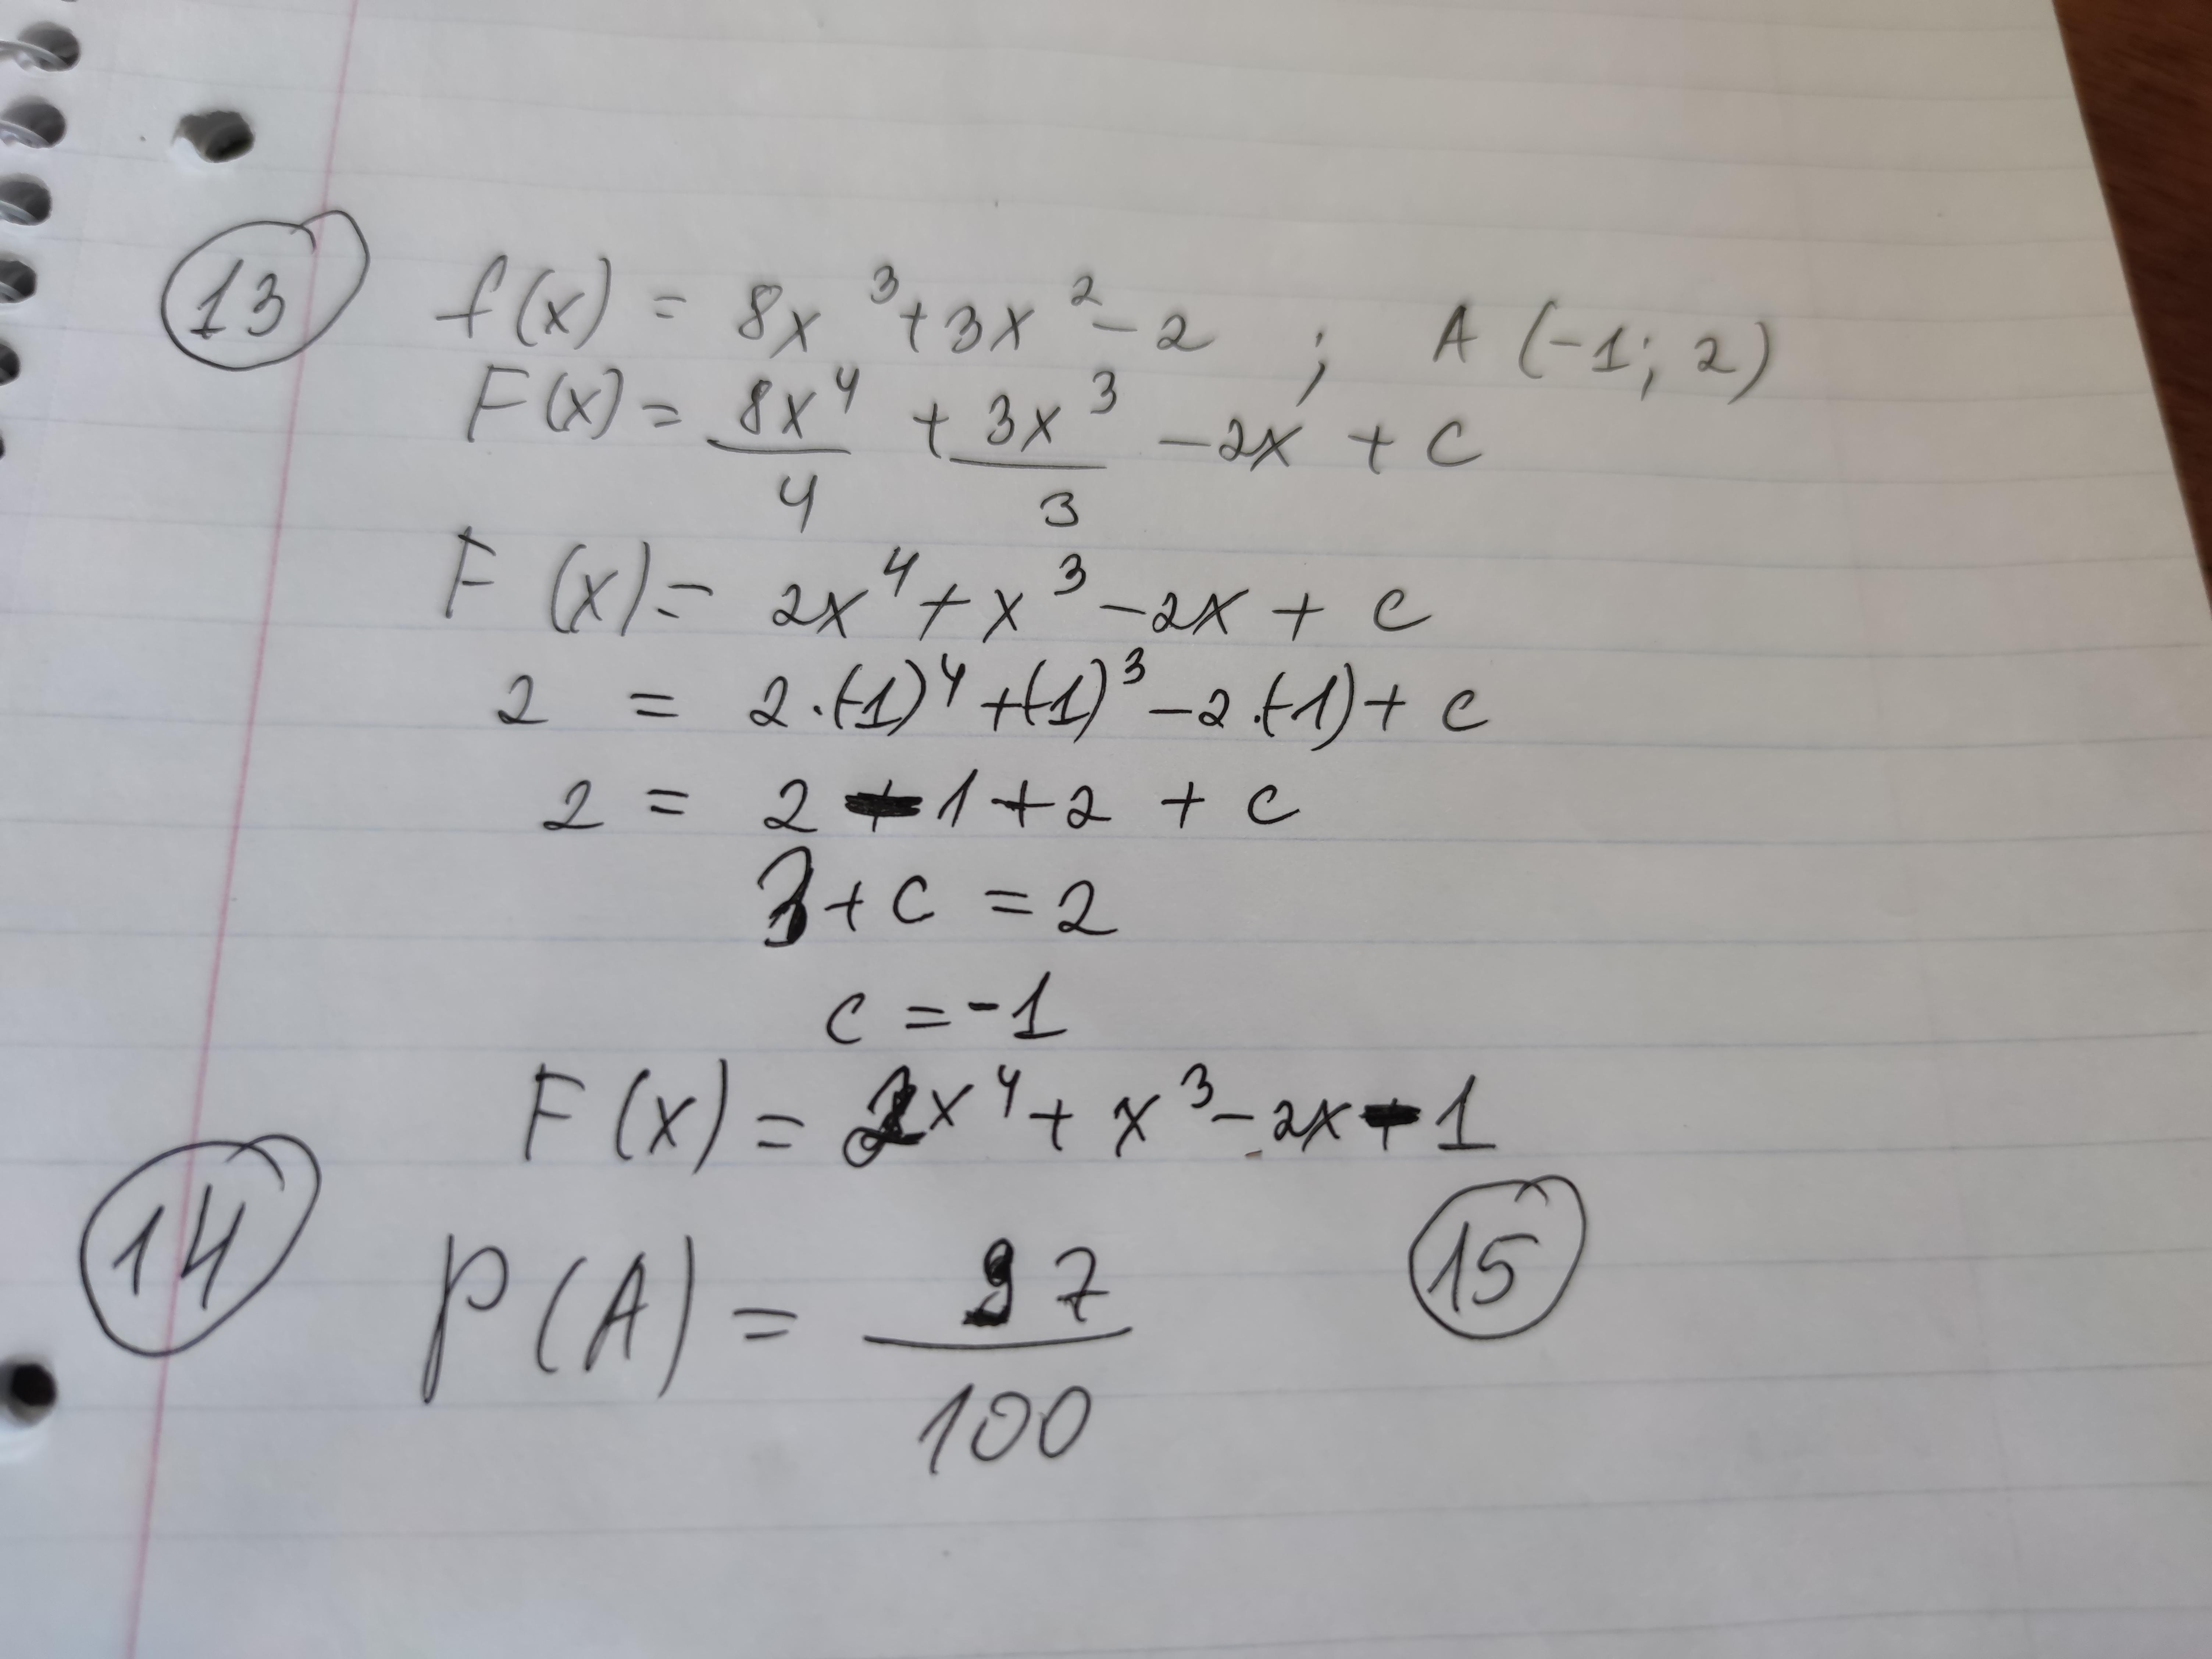 13 f(x) = 8x³ + 3x² - 2 ; A (-1; 2)
F(x) = 8x⁴/4 + 3x³/3 - 2x + c
F (x) = 2x⁴ + x³ - 2x + c
2 = 2·(-1)⁴ + (-1)³ - 2·(-1) + c
2 = 2 - 1 + 2 + c
3 + c = 2
c = -1
F (x) = 2x⁴ + x³ - 2x - 1
14 P(A) = 97/100 15